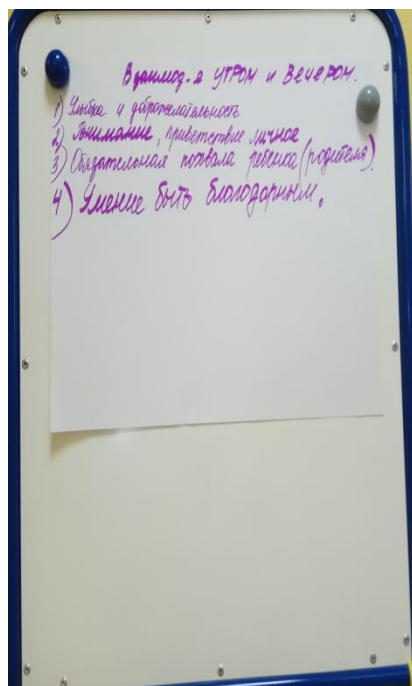 Взаимод-я УТРОМ и ВЕЧЕРОМ.
1) Улыбка и доброжелательность
2) Понимание, приветствие личное
3) Обязательная похвала ребёнка (родителя).
4) Умение быть благодарным.